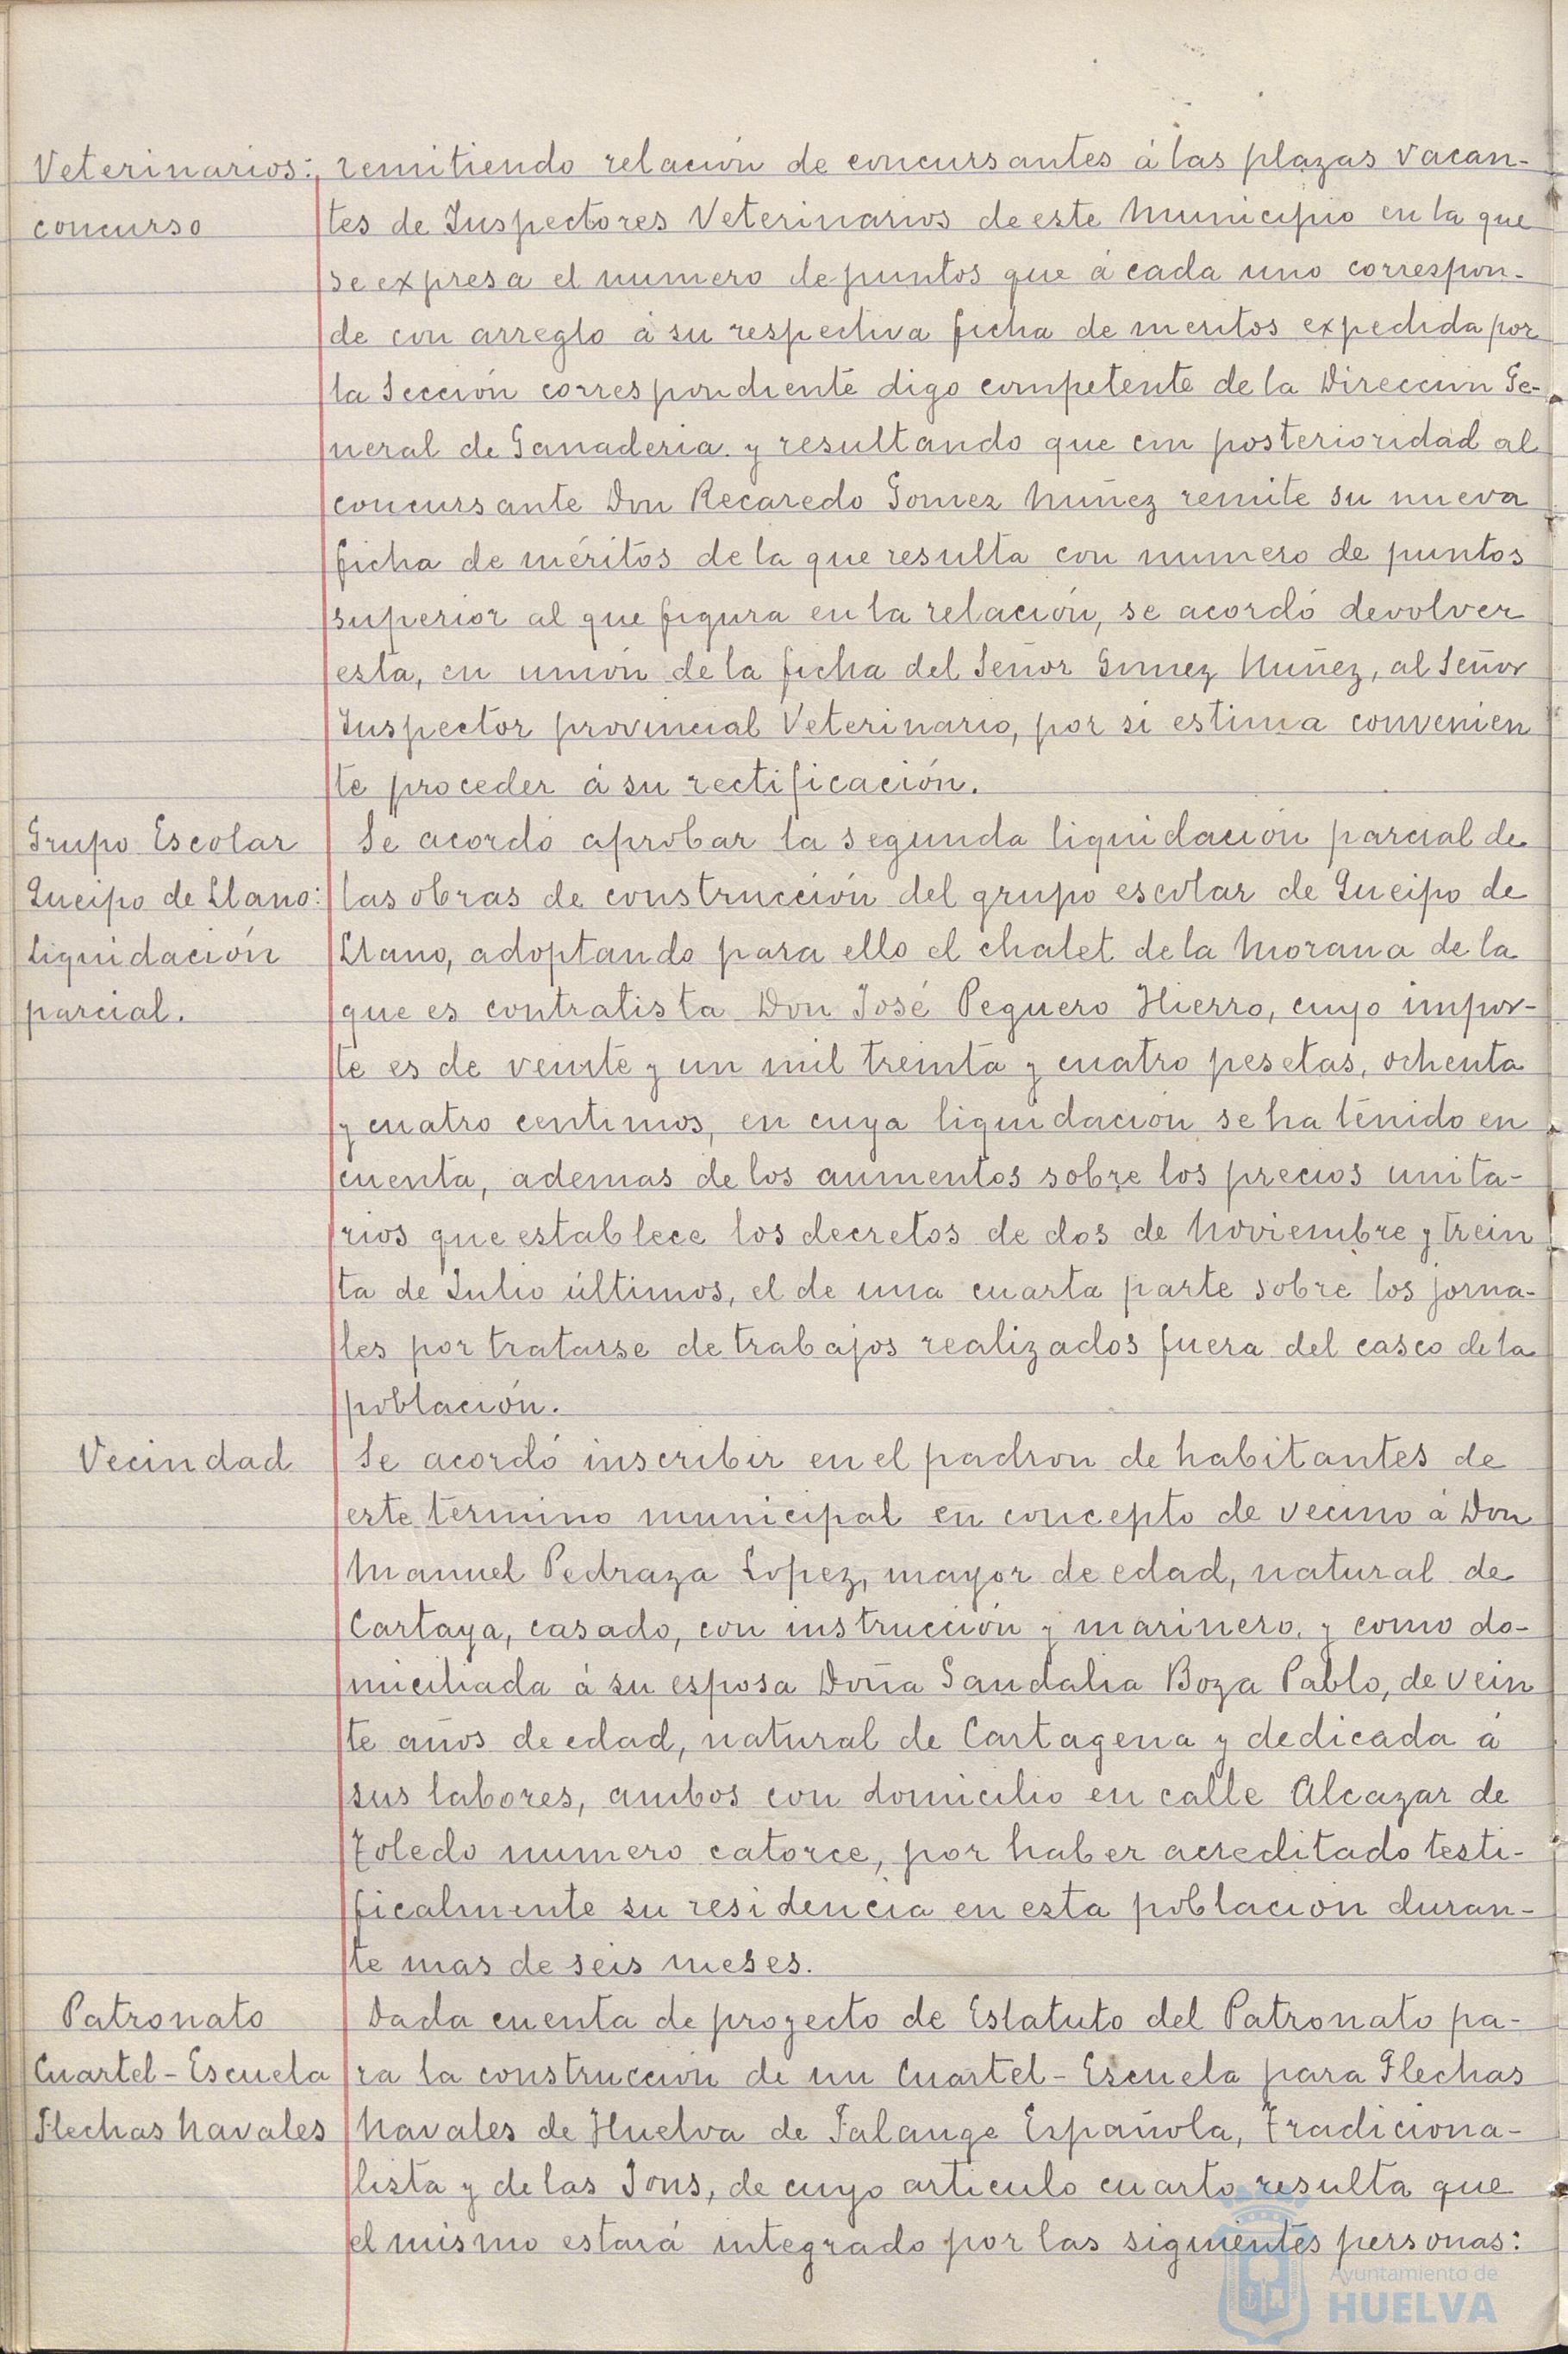 Veterinarios: remitiendo relación de concursantes á las plazas vacan-
concurso tes de Inspectores Veterinarios de este Municipio en la que
se expresa el numero de puntos que á cada uno correspon-
de con arreglo á su respectiva ficha de meritos expedida por
la Sección correspondiente digo competente de la Direccion Ge-
neral de Ganaderia y resultando que con posterioridad al
concursante Don Recaredo Gomez Nuñez remite su nueva
ficha de méritos de la que resulta con numero de puntos
superior al que figura en la relación, se acordó devolver
esta, en unión de la ficha del Señor Gomez Nuñez, al Señor
Inspector provincial Veterinario, por si estima convenien
te proceder á su rectificación.
Grupo Escolar Se acordó aprobar la segunda liquidación parcial de
Queipo de Llano: las obras de construcción del grupo escolar de Queipo de
liquidación Llano, adoptando para ello el chalet de la Morana de la
parcial. que es contratista Don José Peguero Hierro, cuyo impor-
te es de veinte y un mil treinta y cuatro pesetas, ochenta
y cuatro centimos, en cuya liquidación se ha tenido en
cuenta, ademas de los aumentos sobre los precios unita-
rios que establece los decretos de dos de Noviembre y trein
ta de Julio últimos, el de una cuarta parte sobre los jorna-
les por tratarse de trabajos realizados fuera del casco de la
población.
Vecindad Se acordó inscribir en el padron de habitantes de
este termino municipal en concepto de vecino á Don
Manuel Pedraza Lopez, mayor de edad, natural de
Cartaya, casado, con instrucción y marinero, y como do-
miciliada á su esposa Doña Sandalia Boza Pablo, de vein
te años de edad, natural de Cartagena y dedicada á
sus labores, ambos con domicilio en calle Alcazar de
Toledo numero catorce, por haber acreditado testi-
ficalmente su residencia en esta poblacion duran-
te mas de seis meses.
Patronato Dada cuenta de proyecto de Estatuto del Patronato pa-
Cuartel-Escuela ra la construcción de un Cuartel-Escuela para Flechas
Flechas Navales Navales de Huelva de Falange Española, Tradiciona-
lista y de las Jons, de cuyo articulo cuarto resulta que
el mismo estará integrado por las siguientes personas:
Ayuntamiento de
HUELVA